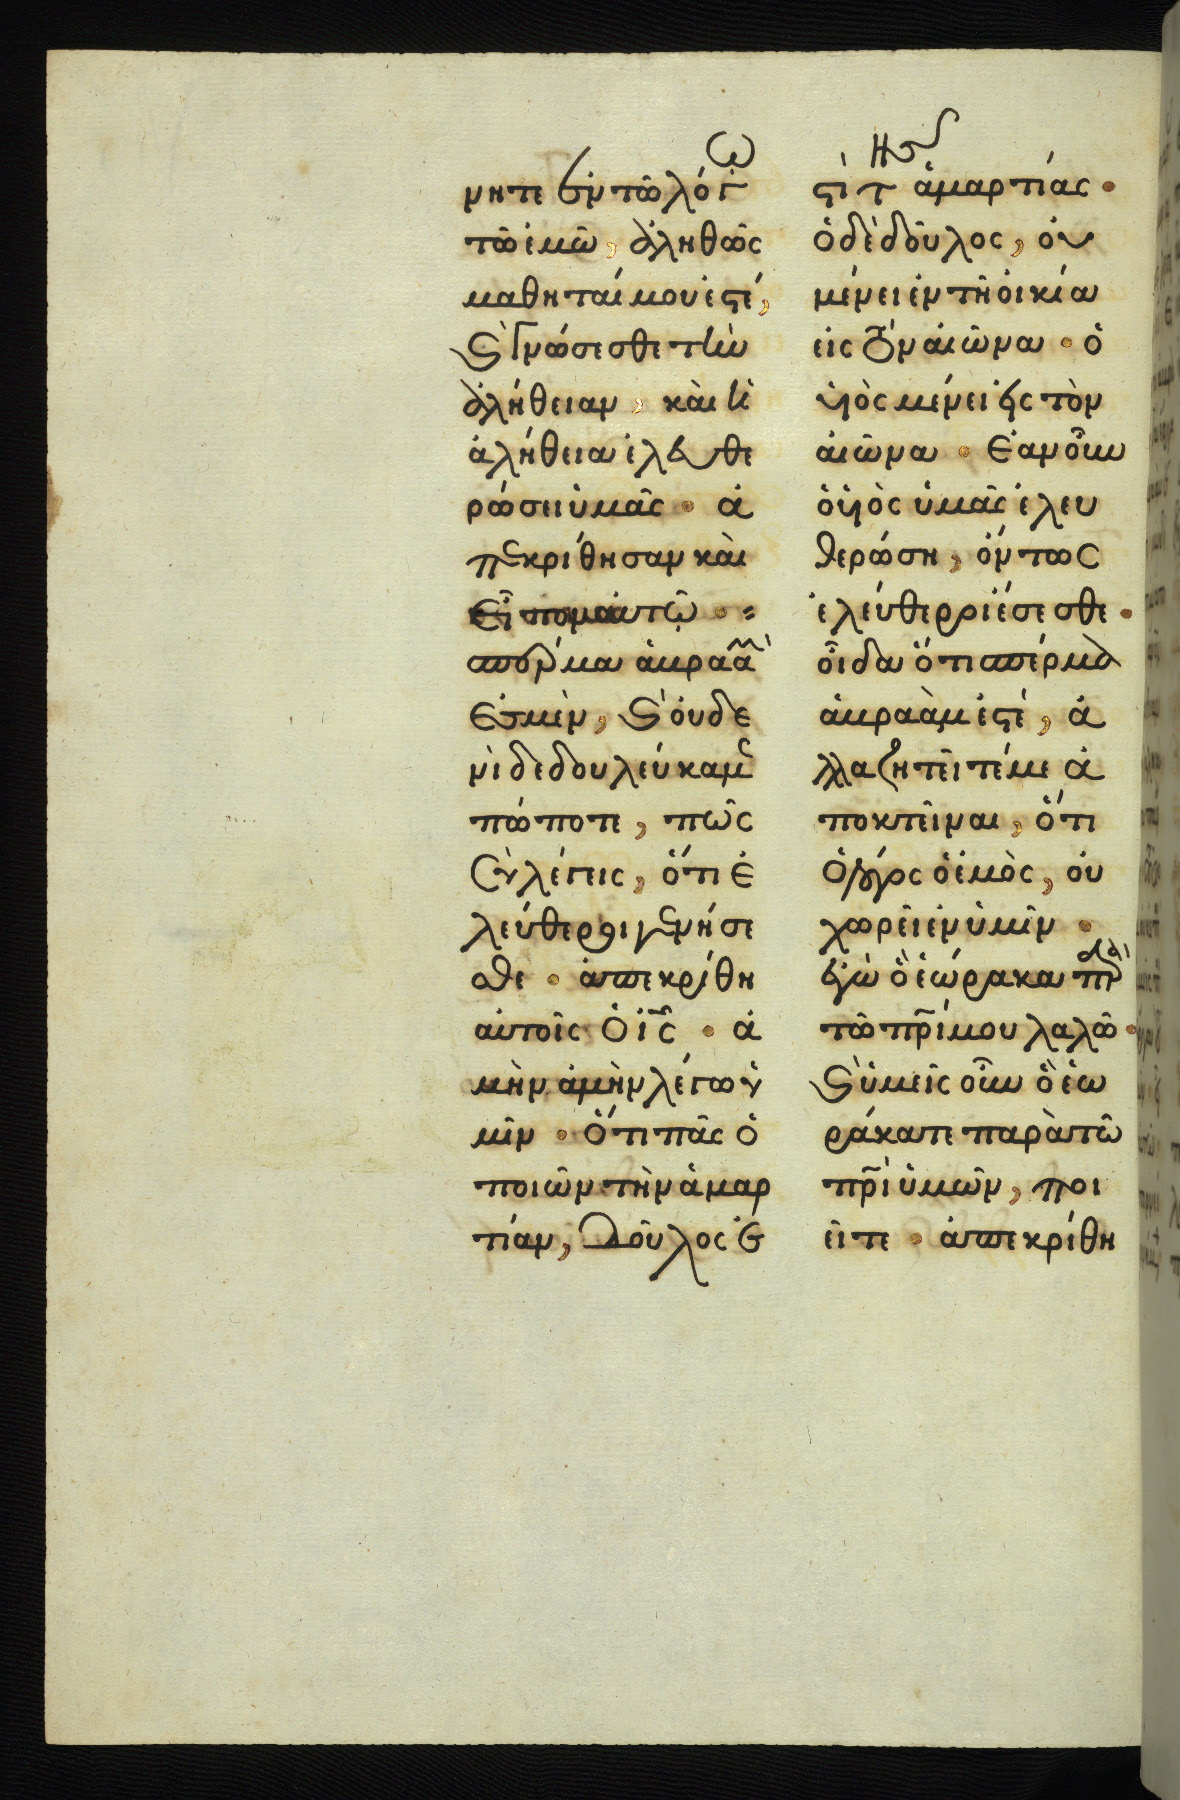 νητε ἐν τῶ λόγ ῳ
τῶ ἐμῶ, ἀληθῶς
μαθηταί μου ἐστέ,
ϗ γνώσεσθε τὴν
ἀλήθειαν, καὶ ἡ
ἀλήθεια ἐλευθε
ρώσει ὑμᾶς · ἀ
πεκρίθησαν καὶ
εἶπον αὐτῷ ·
σπέρμα ἀβραάμ
ἐσμὲν, ϗ οὐδε
νὶ δεδουλεύκαμεν
πώποτε, πῶς
σὺ λέγεις, ὅτι ἐ
λεύθεροι γενήσε
σθε · ἀπεκρίθη
αὐτοῖς ὁ ἰς̄ · ἀ
μὴν ἀμὴν λέγω ὑ
μῖν · ὅτι πᾶς ὁ
ποιῶν τὴν ἁμαρ
τίαν, δοῦλός ἐ
στὶ τῆς ἁμαρτίας ·
ὁ δὲ δοῦλος, οὐ
μένει ἐν τῆ οἰκία
εἰς τὸν αἰῶνα · ὁ
υἱὸς μένει εἰς τὸν
αἰῶνα · Ἐὰν οὖν
ὁ υἱὸς ὑμᾶς ἐλευ
θερώση, ὄντως
ἐλεύθεροι ἔσεσθε ·
οἶδα ὅτι σπέρμα
ἀβραάμ ἐστέ, ἀ
λλα ζητεῖτέ με ἀ
ποκτεῖναι, ὅτι
ὁ λόγος ὁ ἐμὸς, οὐ
χωρεῖ ἐν ὑμῖν ·
ἐγὼ ὃ ἑώρακα παρὰ
τῶ πρ̄ί μου λαλῶ ·
ϗ ὑμεῖς οὖν ὃ ἑω
ράκατε παρὰ τῶ
πρ̄ὶ ὑμῶν, ποι
εῖτε · ἀπεκρίθη